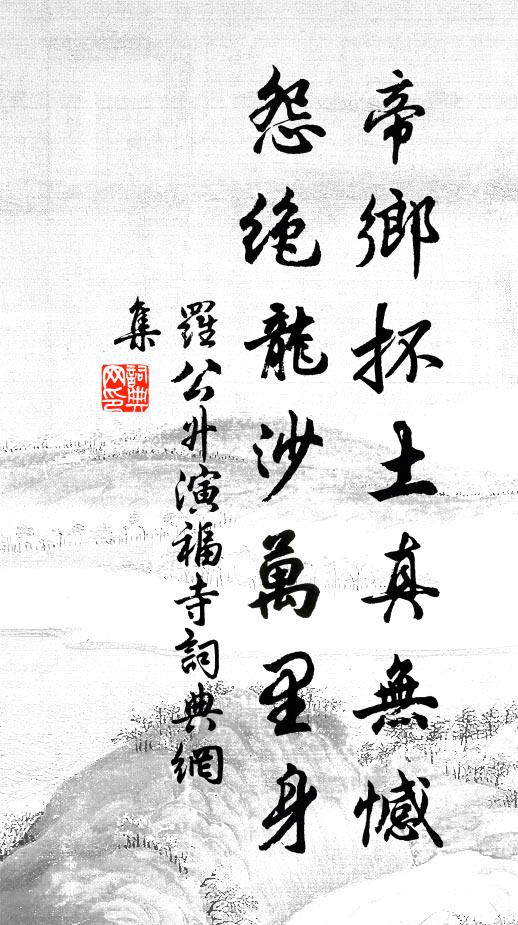 帝鄉抔土真無憾
怨絶龍沙萬里身
羅公升演福寺詞典網
集
詞典网印